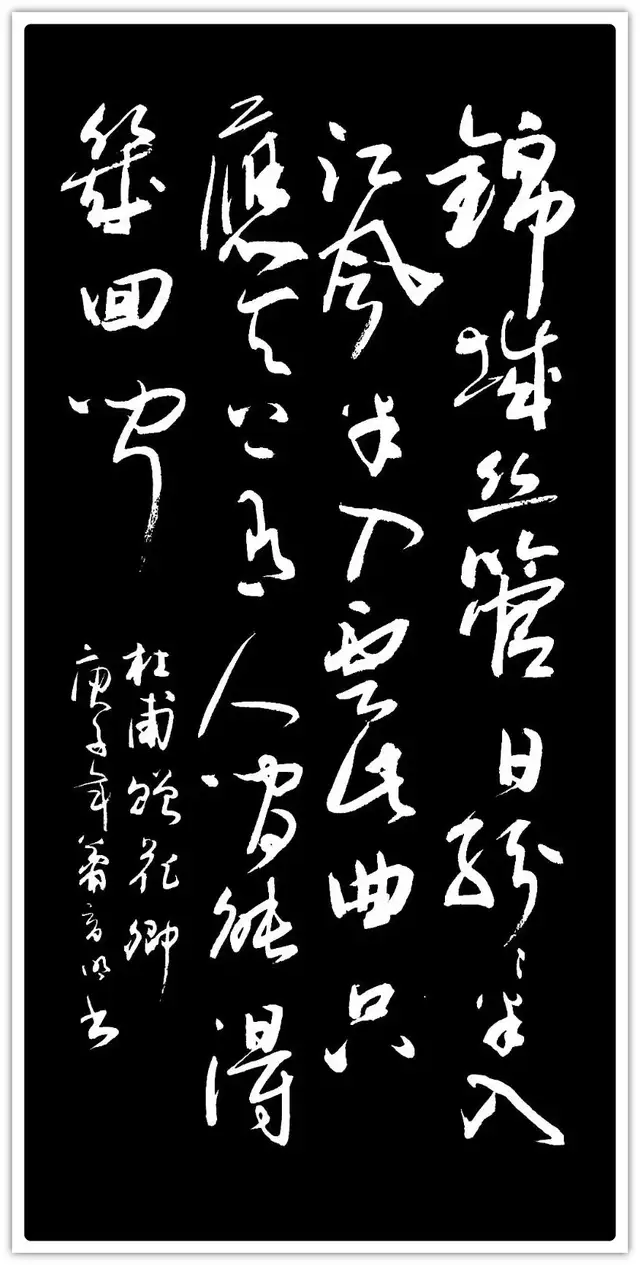 錦城丝管日紛〻半入
江風半入雲此曲只
應天上有人間能得
幾回聞
杜甫贈花卿
庚子年书